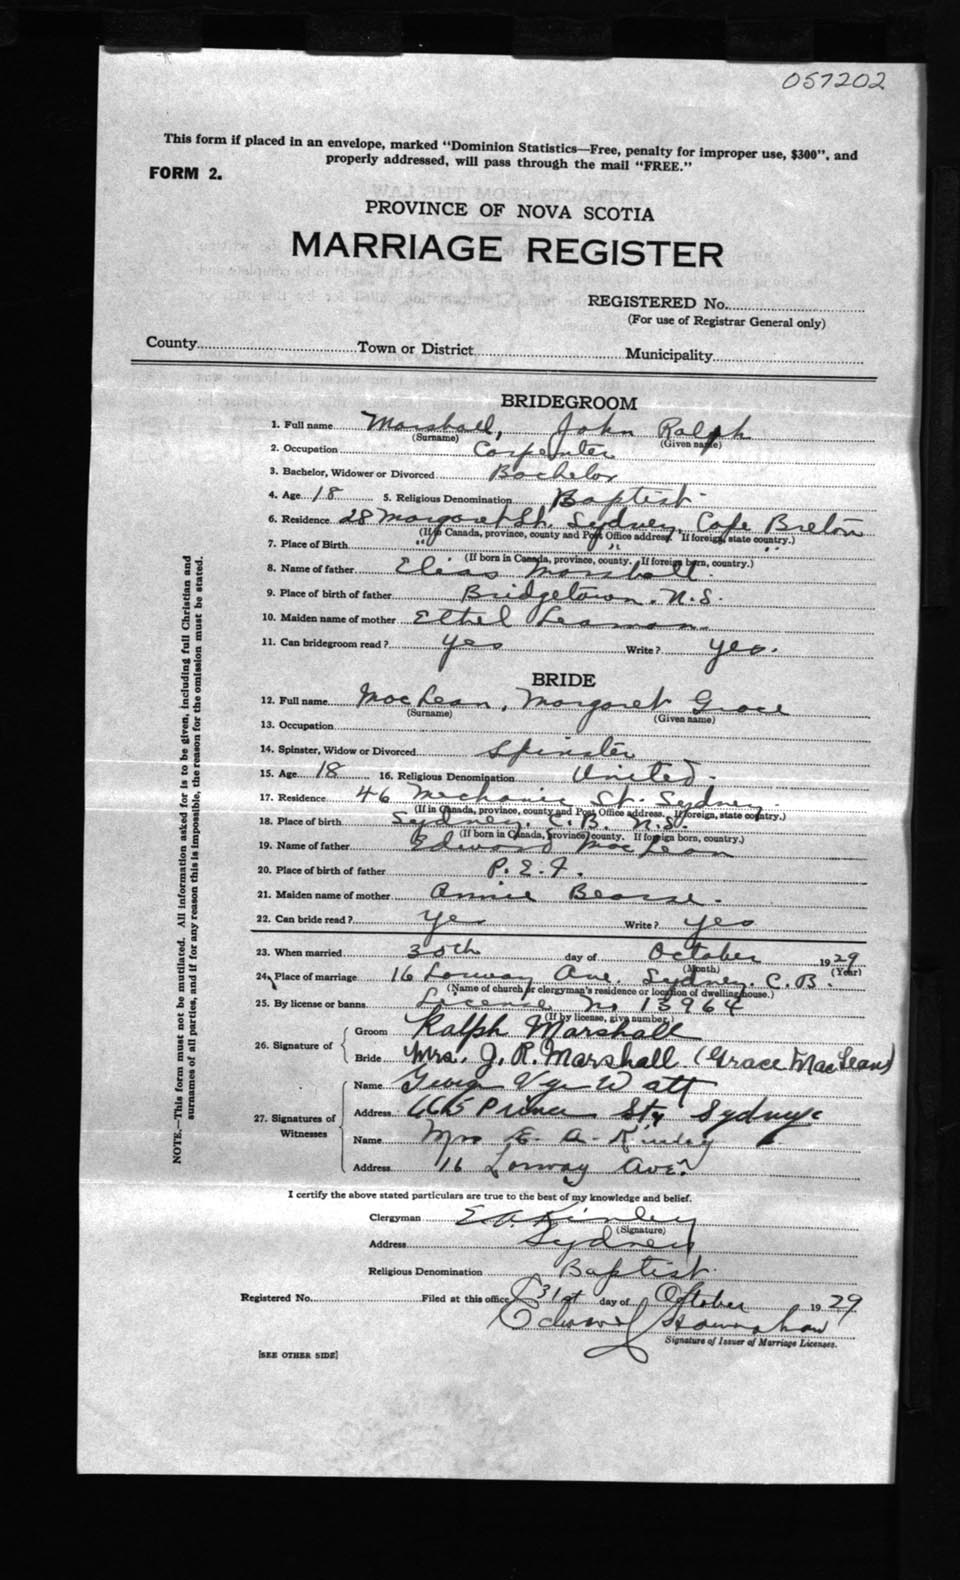 057202
This form if placed in an envelope, marked "Dominion Statistics—Free, penalty for improper use, $300", and
properly addressed, will pass through the mail "FREE."
FORM 2.
PROVINCE OF NOVA SCOTIA
MARRIAGE REGISTER
REGISTERED No.
(For use of Registrar General only)
County Town or District Municipality
BRIDEGROOM
1. Full name Marshall, John Ralph
(Surname) (Given name)
2. Occupation Carpenter
3. Bachelor, Widower or Divorced Bachelor
4. Age 18 5. Religious Denomination Baptist
6. Residence 28 Margaret St. Sydney, Cape Breton
(If in Canada, province, county and Post Office address. If foreign, state country.)
7. Place of Birth " " "
(If born in Canada, province, county. If foreign born, country.)
8. Name of father Elias Marshall
9. Place of birth of father Bridgetown. N.S.
10. Maiden name of mother Ethel Leaman
11. Can bridegroom read? yes Write? yes.
BRIDE
12. Full name MacLean, Margaret Grace
(Surname) (Given name)
13. Occupation
14. Spinster, Widow or Divorced Spinster
15. Age 18 16. Religious Denomination United
17. Residence 46 Mechanic St. Sydney.
(If in Canada, province, county and Post Office address. If foreign, state country.)
18. Place of birth Sydney. C.B. N.S.
(If born in Canada, province, county. If foreign born, country.)
19. Name of father Edward MacLean
20. Place of birth of father P.E.I.
21. Maiden name of mother Annie
22. Can bride read? yes Write? yes
23. When married 30th day of October 1929
(Month) (Year)
24. Place of marriage 16 Lorway Ave. Sydney. C.B.
(Name of church or clergyman's residence or location of dwelling house.)
25. By license or banns License No 13964
(If by license, give number.)
26. Signature of Groom Ralph Marshall
Bride Mrs. J. R. Marshall (Grace MacLean)
27. Signatures of Witnesses Name Watt
Address Prince St, Sydney
Name Mrs E. A. Kinley
Address 16 Lorway Ave.
I certify the above stated particulars are true to the best of my knowledge and belief.
Clergyman E.A. Kinley
(Signature)
Address Sydney
Religious Denomination Baptist
Registered No. Filed at this office 31st day of October 1929
Signature of Issuer of Marriage Licenses.
[SEE OTHER SIDE]
NOTE.—This form must not be mutilated. All information asked for is to be given, including full Christian and
surnames of all parties, and if for any reason this is impossible, the reason for the omission must be stated.